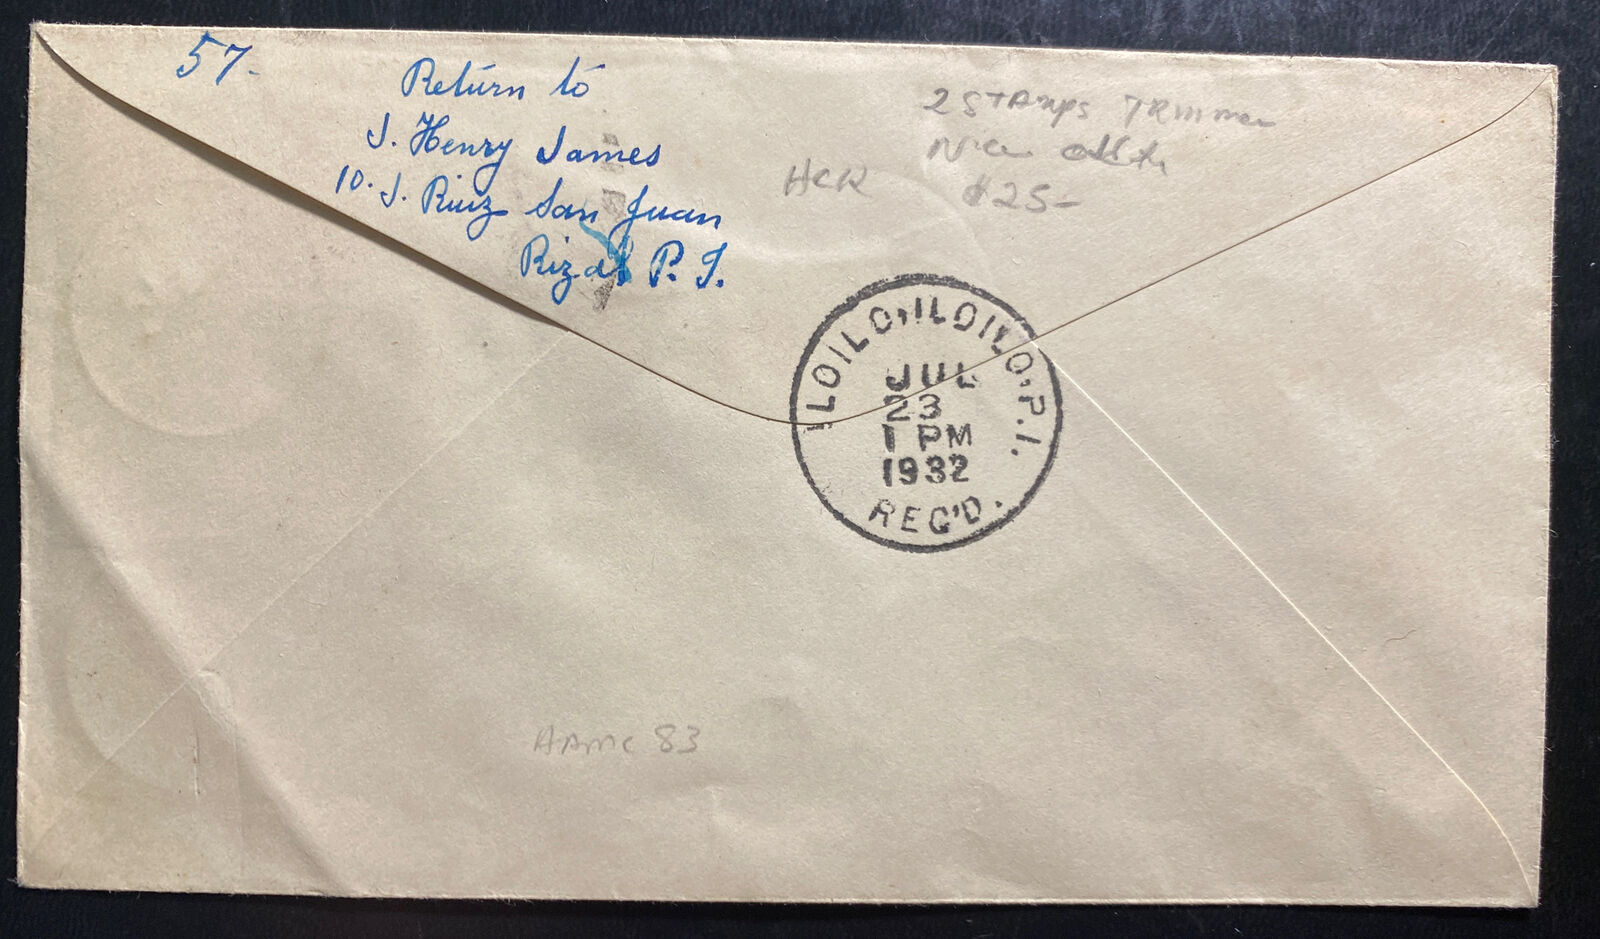 57.
Return to
J. Henry James
10. J. Ruiz San Juan
Rizal P. I.
2 STAMPS TRIMMED
$25-
ILOILO, ILOILO, P.I.
JUL
23
1 PM
1932
REC'D.
AAMC 83